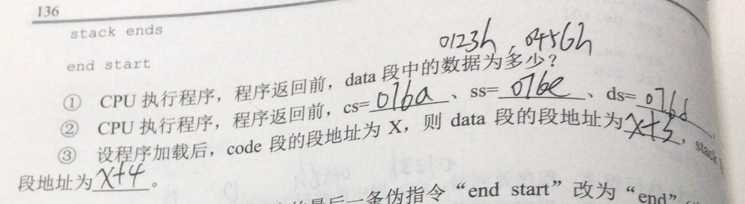 136
stack ends
end start
0123h, 0456h
① CPU 执行程序，程序返回前，data 段中的数据为多少？
② CPU 执行程序，程序返回前，cs=076a、ss=076e、ds=076d
③ 设程序加载后，code 段的段地址为 X，则 data 段的段地址为X+3，stack
段地址为X+4。
最后一条伪指令“end start”改为“end”